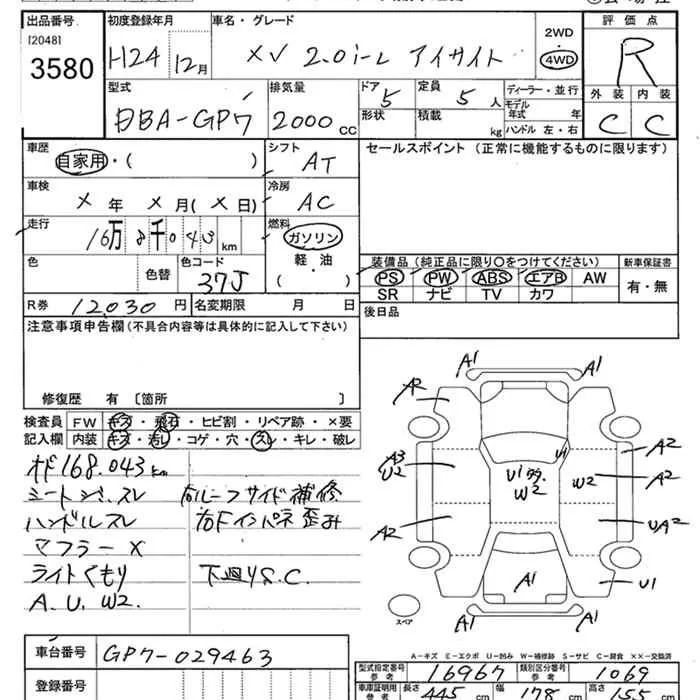 出品番号 初度登録年月 車名・グレード 評価点
[2048] H24 12月 XV 2.0i-L アイサイト 2WD 4WD R
3580
型式 排気量 ドア 定員 ディーラー・並行 外装 内装
DBA-GP7 2000cc 5 5人 モデル年式 年 C C
形状 積載 kg ハンドル 左・右
車歴 シフト セールスポイント(正常に機能するものに限ります)
自家用・( ) AT
車検 冷房
X年 X月(X日) AC
走行 燃料
16万8千043km ガソリン
色 色替 色コード 軽油 装備品(純正品に限り○をつけてください) 新車保証書
37J ・( ) PS PW ABS エアB AW 有・無
SR ナビ TV カワ
R券 12,030円 名変期限 月 日 後日品
注意事項申告欄(不具合内容等は具体的に記入して下さい)
修復歴 有〔箇所 〕
検査員 FW キズ・飛石・ヒビ割・リペア跡・×要
記入欄 内装 キズ・汚レ・コゲ・穴・スレ・キレ・破レ
168.043km
シートシワ、スレ 右ルーフサイド補修
ハンドルスレ 右Fインパネ歪み
マフラーX
ライトくもり 下廻りS.C.
A.U.W2.
A1 A1
A2
A3 U2 U1 U1多 W2 W2 A2
A2
A2 UA2
A1 U1
A1 A1
スペア
A-キズ E-エクボ U-凹み W-補修跡 S-サビ C-腐食 XX-交換済
車台番号 GP7-029463
型式指定番号 参考 16967 類別区分番号 参考 1069
登録番号 車庫証明用 参考 長さ 445cm 幅 178cm 高さ 155cm